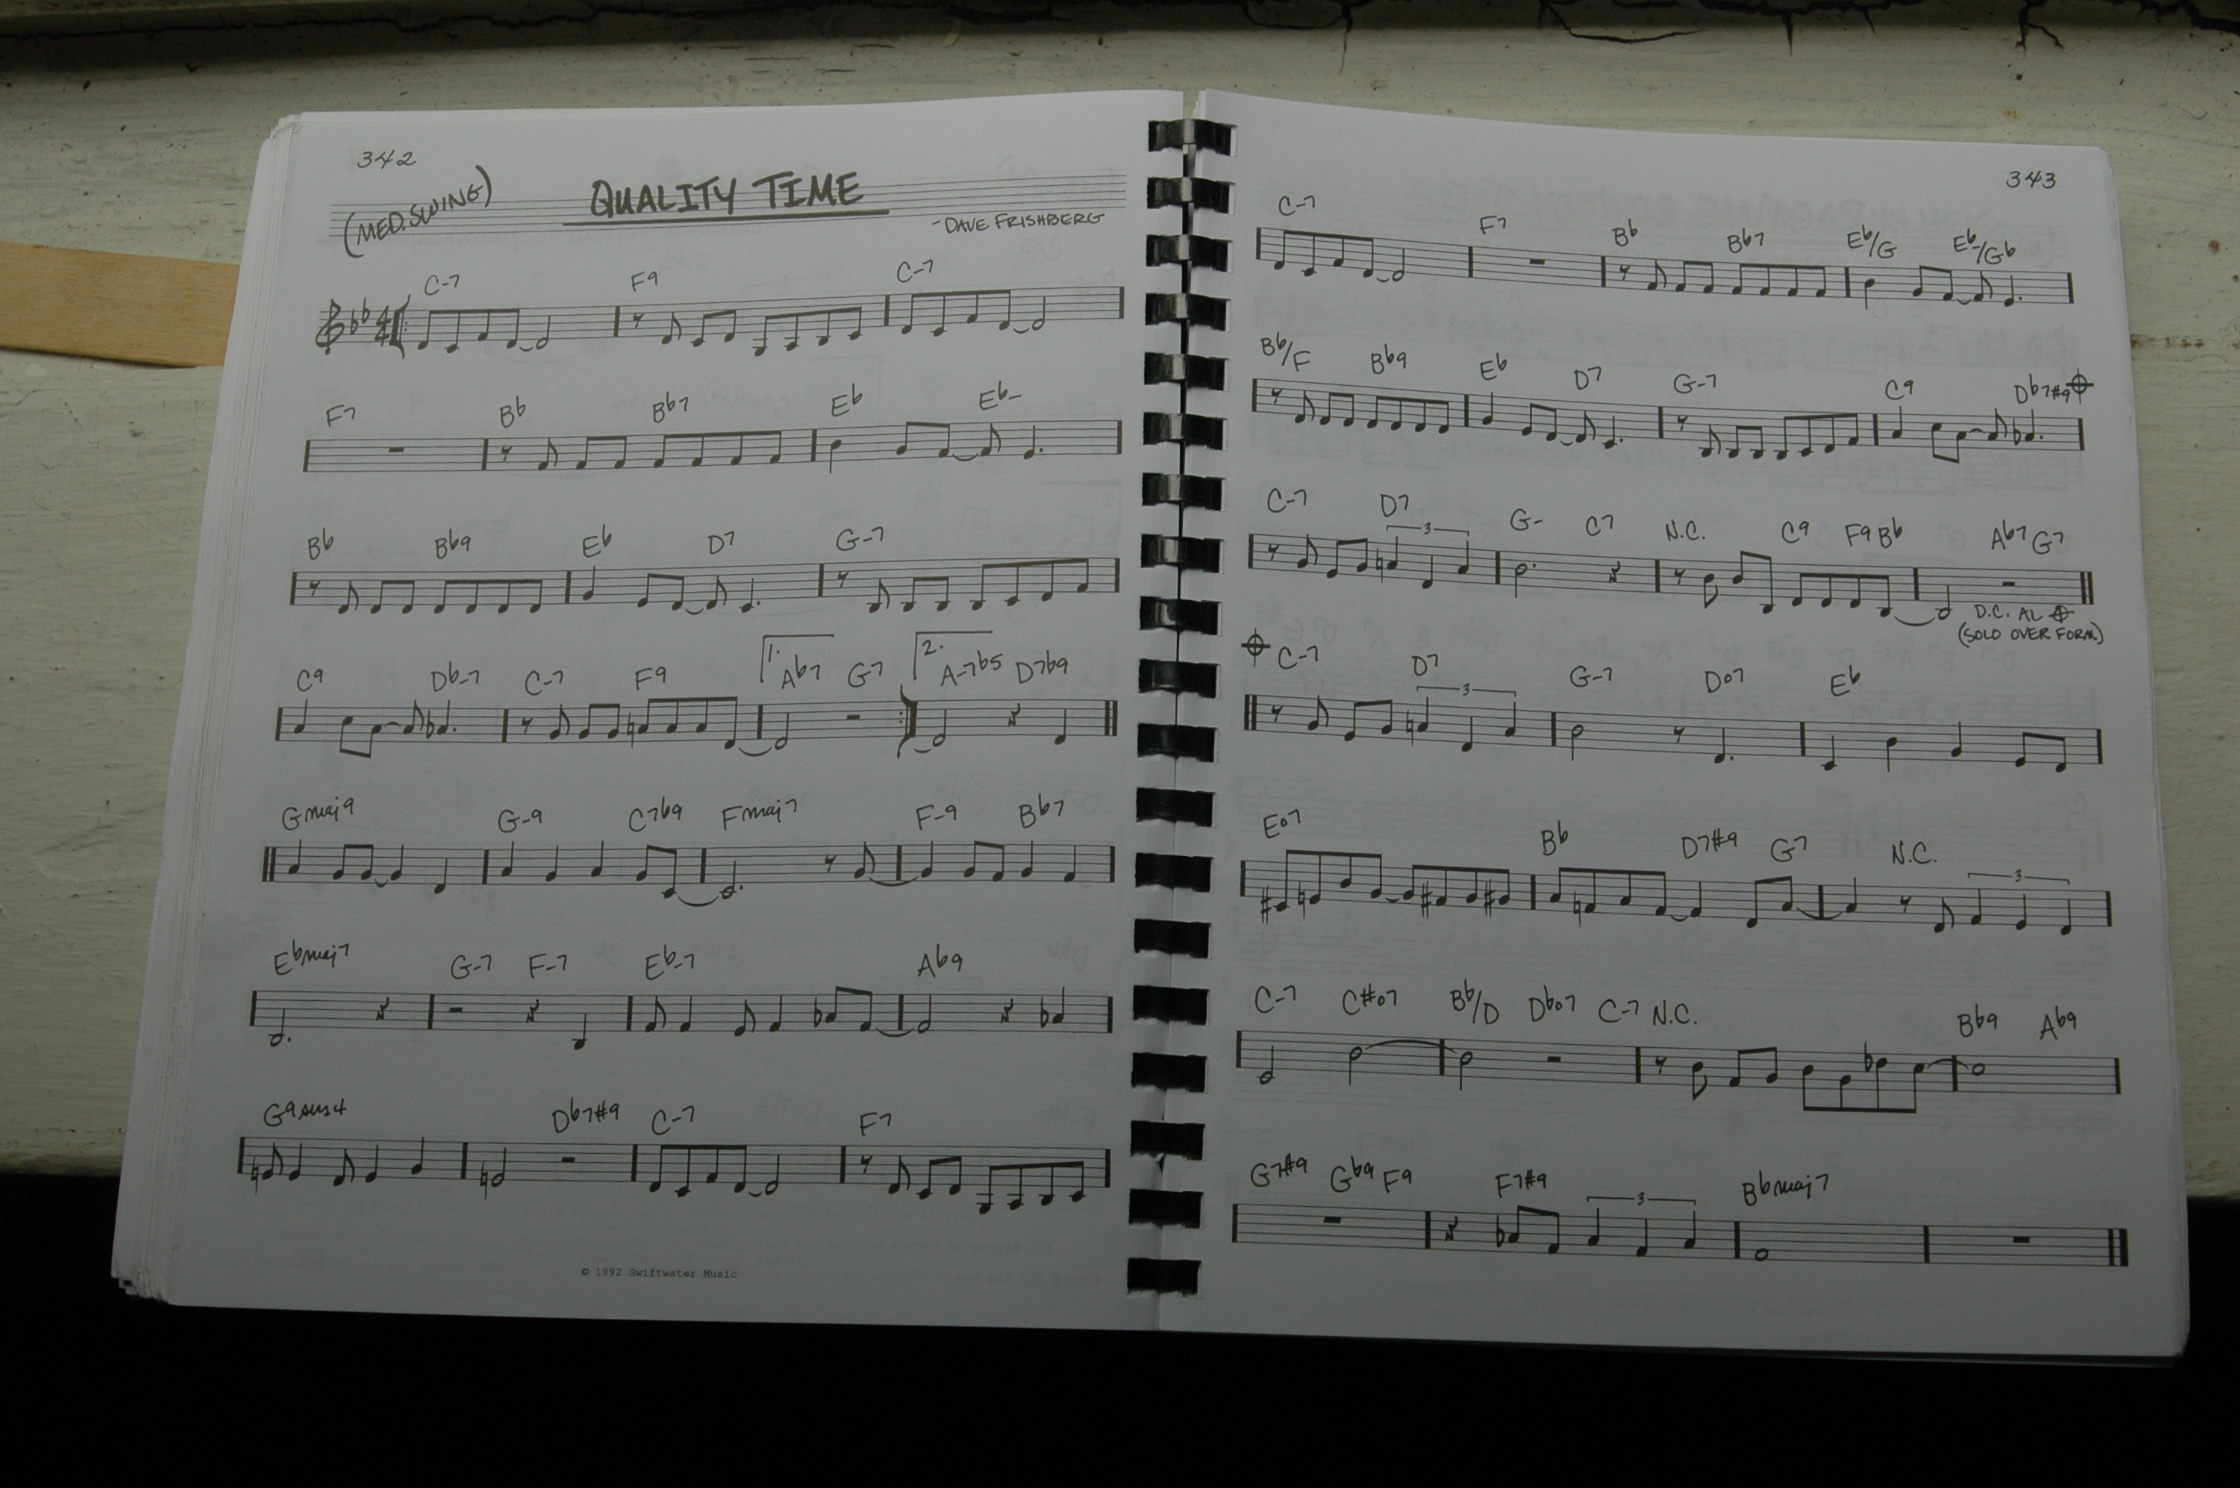 342
(MED. SWING)
QUALITY TIME
-DAVE FRISHBERG
C-7 F9 C-7
F7 Bb Bb7 Eb Eb-
Bb Bb9 Eb D7 G-7
C9 Db-7 C-7 F9 1. Ab7 G7 2. A-7b5 D7b9
Gmaj9 G-9 C7b9 Fmaj7 F-9 Bb7
Ebmaj7 G-7 F-7 Eb-7 Ab9
G9sus4 Db7#9 C-7 F7
© 1992 Swiftwater Music
343
C-7 F7 Bb Bb7 Eb/G Eb-/Gb
Bb/F Bb9 Eb D7 G-7 C9 Db7#9
C-7 D7 3 G- C7 N.C. C9 F9 Bb Ab7 G7
D.C. AL
(SOLO OVER FORM)
C-7 D7 3 G-7 Do7 Eb
Eo7 Bb D7#9 G7 N.C. 3
C-7 C#o7 Bb/D Dbo7 C-7 N.C. Bb9 Ab9
G7#9 Gb9 F9 F7#9 3 Bbmaj7